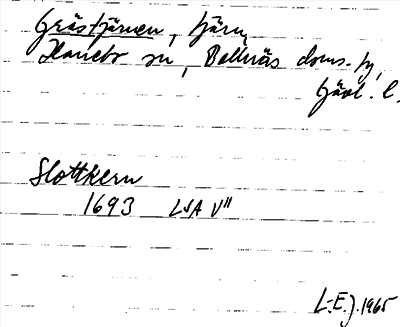 Grästjärnen, tjärn,
Hanebo sn, Bollnäs doms. hg,
Gävl. l.
Slottkern
1693 LSA V11
L-E.J. 1965